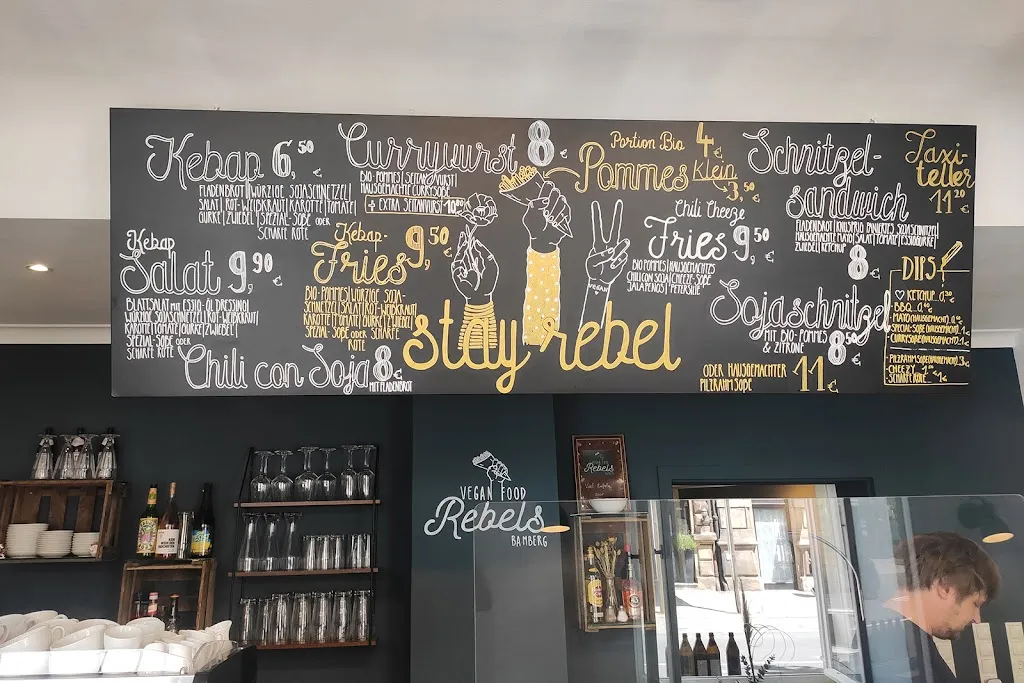 Kebap 6,50 €
FLADENBROT | WÜRZIGE SOJASCHNETZEL |
SALAT | ROT-WEIßKRAUT | KAROTTE | TOMATE |
GURKE | ZWIEBEL | SPEZIAL-SOßE ODER
SCHARFE ROTE
Currywurst 8 €
BIO-POMMES | SEITANWURST |
HAUSGEMACHTE CURRYSOßE
+ EXTRA SEITANWURST
Portion Bio 4 €
Pommes Klein
3,50
Schnitzel-
sandwich
FLADENBROT | KNUSPRIG PANIERTES SOJASCHNITZEL |
HAUSGEMACHTE MAYO | SALAT | TOMATE | ESSIGGURKE |
ZWIEBEL | KETCHUP
8 €
Taxi-
teller
11 20 €
Kebap
Salat 9,90 €
BLATTSALAT MIT ESSIG-ÖL DRESSING |
WÜRZIGE SOJASCHNETZEL | ROT-WEIßKRAUT |
KAROTTE | TOMATE | GURKE | ZWIEBEL |
SPEZIAL-SOßE ODER
SCHARFE ROTE
Kebap-
Fries 9,50 €
BIO-POMMES | WÜRZIGE SOJA-
SCHNETZEL | SALAT | ROT-WEIßKRAUT
KAROTTE | TOMATE | GURKE | ZWIEBEL
SPEZIAL SOßE ODER SCHARFE
ROTE
Chili Cheeze
Fries 9,50 €
BIO POMMES | HAUSGEMACHTES
CHILI CON SOJA | CHEEZE-SOßE
JALAPENOS | PETERSILIE
VEGAN
Sojaschnitzel
MIT BIO-POMMES
& ZITRONE
8,50 €
ODER HAUSGEMACHTER
PILZRAHMSOßE 11 €
Chili con Soja 8 €
MIT FLADENBROT
stay rebel
DIPS
♡ KETCHUP
- BBQ
- MAYO (HAUSGEMACHT)
- SPECIAL-SOßE (HAUSGEMACHT) 1 €
- CURRYSOßE (HAUSGEMACHT) 1 €
- PILZRAHMSOßE (HAUSGEMACHT) 3 €
- CHEEZY
- SCHARFE ROTE 1 €
VEGAN FOOD
Rebels
BAMBERG
Rebels